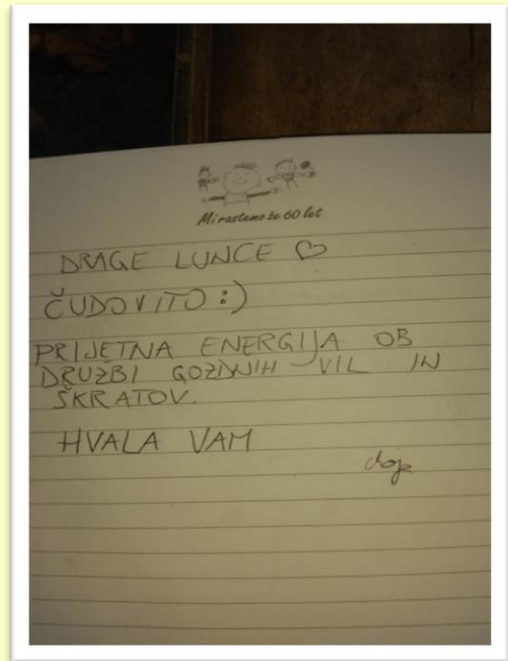 Mi rastemo že 60 let
DRAGE LUNCE ♡
ČUDOVITO :)
PRIJETNA ENERGIJA OB
DRUŽBI GOZDNIH VIL IN
ŠKRATOV.
HVALA VAM